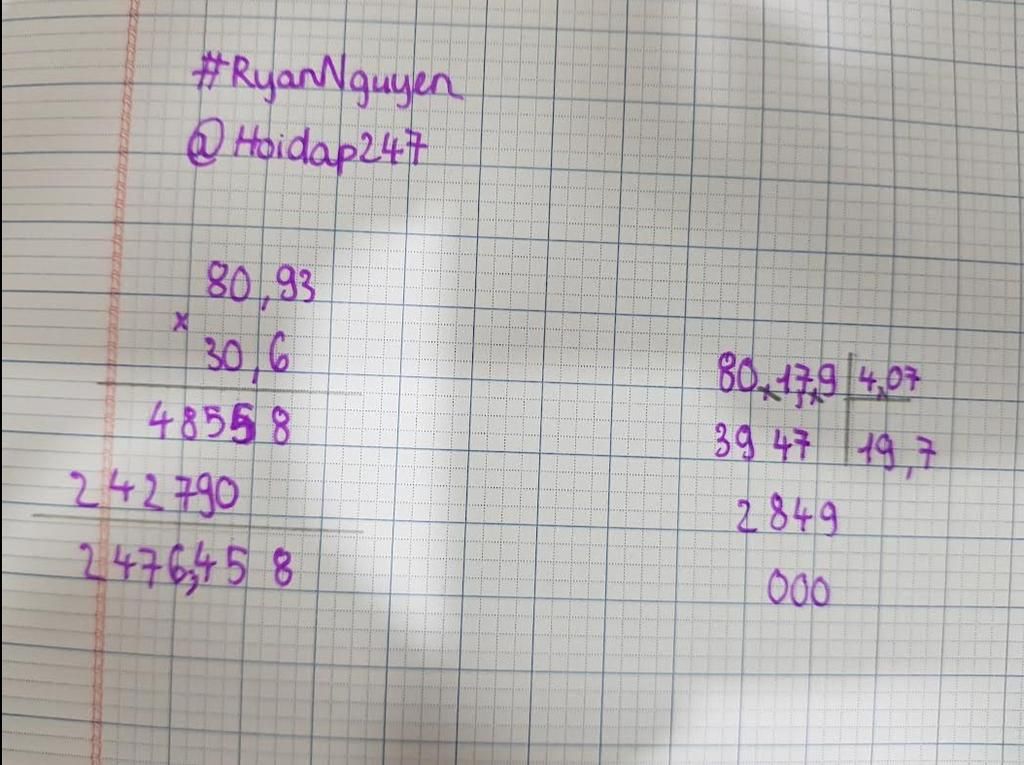 #RyanNguyen
@Hoidap247
80,93
x
30,6
48558
242790
2476,458
80,17,9 4,07
3947 19,7
2849
000